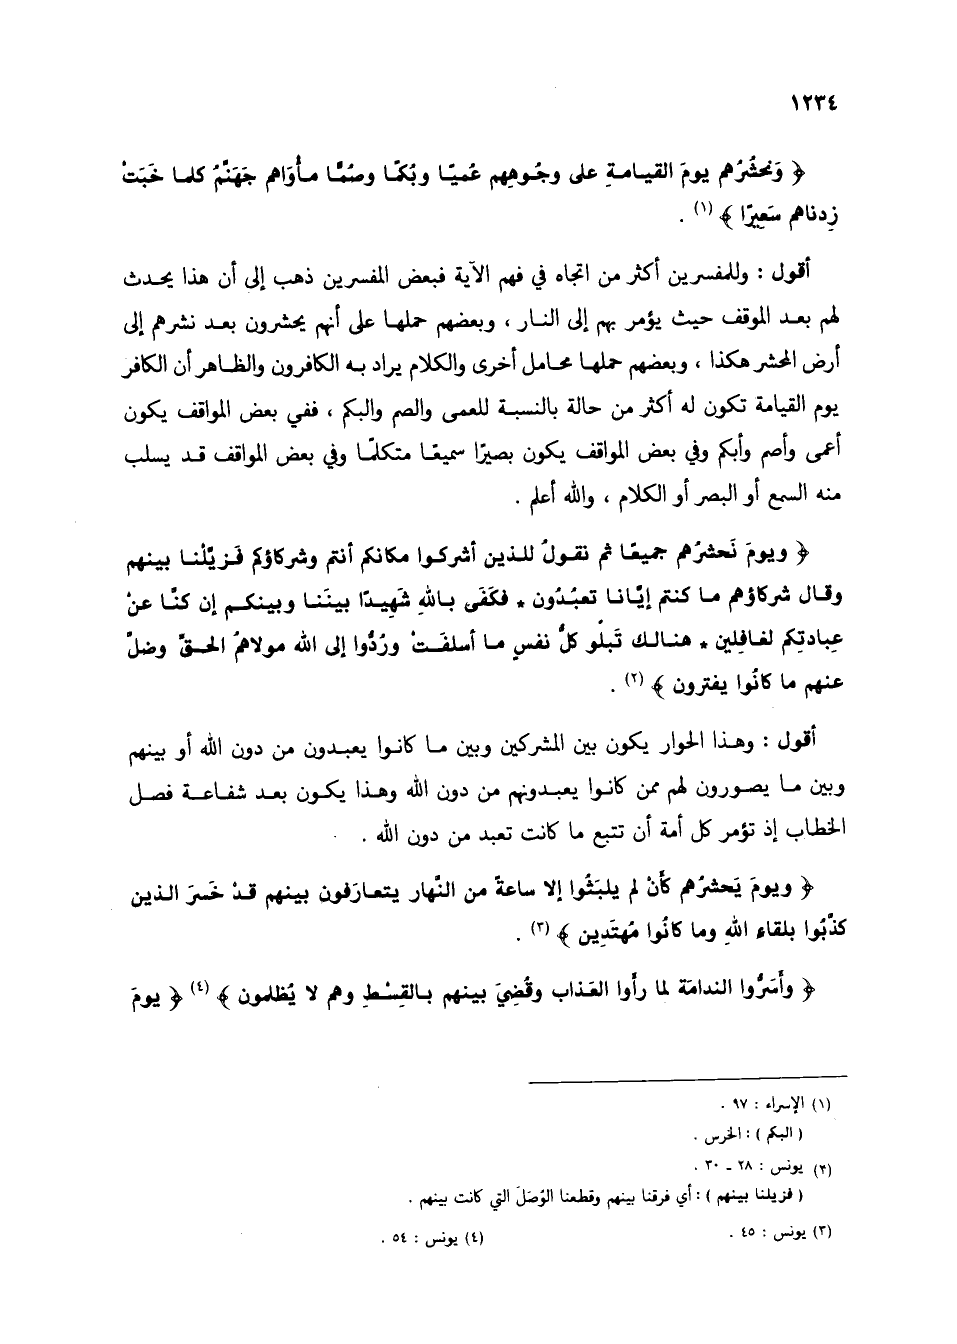 ١٢٣٤
﴿ وَنَحْشُرُهم يومَ القيـامـةِ على وجُـوهِهِم عُميًـا وبُكمًـا وصُمًّـا مـأوَاهم جَهَنَّمُ كلمـا خَبَتْ
زِدناهم سَعِيرًا ﴾ (١) .
أقول : وللمفسرين أكثر من اتجاه في فهم الآية فبعض المفسرين ذهب إلى أن هذا يحـدث
لهم بعـد الموقف حيث يؤمر بهم إلى النـار ، وبعضهم حملهـا على أنهم يحشرون بعـد نشرهم إلى
أرض المحشر هكذا ، وبعضهم حملهـا محـامل أخرى والكلام يراد بـه الكافرون والظـاهر أن الكافر
يوم القيامة تكون له أكثر من حالة بالنسبة للعمى والصم والبكم ، ففي بعض المواقف يكون
أعمى وأصم وأبكم وفي بعض المواقف يكون بصيرًا سميعًـا متكلمًـا وفي بعض المواقف قـد يسلب
منه السمع أو البصر أو الكلام ، والله أعلم .
﴿ ويومَ نَحشرُهم جميعًـا ثم نقـولُ للـذين أشركـوا مكانكم أنتم وشركاؤكم فَـزيَّلْنـا بينهم
وقـال شركاؤهم مـا كنتم إيَّـانـا تعبُـدُون ٭ فكَفَى بـاللهِ شَهِيـدًا بينَنـا وبينكـم إن كنَّـا عنْ
عِبادتِكم لغـافِلين ٭ هنـالـك تَبلُو كلُّ نفسٍ مـا أسلفَـتْ ورُدُّوا إلى الله مولاهمُ الحـقِّ وضلَّ
عنهم ما كانُوا يفترون ﴾ (٢) .
أقول : وهـذا الحوار يكون بين المشركين وبين مـا كانـوا يعبـدون من دون الله أو بينهم
وبين مـا يصـورون لهم ممن كانـوا يعبـدونهم من دون الله وهـذا يكـون بعـد شفـاعـة فصـل
الخطاب إذ تؤمر كل أمة أن تتبع ما كانت تعبد من دون الله .
﴿ ويومَ يَحشرُهم كأَنْ لم يلبَثُوا إلا ساعةً من النَّهار يتعـارَفون بينهم قـدْ خَسرَ الـذين
كذَّبُوا بلقاءِ اللهِ وما كانُوا مُهتَدِين ﴾ (٣) .
﴿ وأَسَرُّوا الندامَة لما رأَوا العَذاب وقُضِيَ بينهم بـالقِسْـطِ وهم لا يُظلمون ﴾ (٤) ﴿ يومَ
(١) الإسراء : ٩٧ .
( البكم ) : الخرس .
(٢) يونس : ٢٨ ـ ٣٠ .
( فزيلنا بينهم ) : أي فرقنا بينهم وقطعنا الوُصَلَ التي كانت بينهم .
(٣) يونس : ٤٥ . (٤) يونس : ٥٤ .